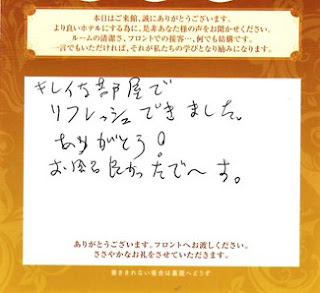 本日はご来館、誠にありがとうございます。
より良いホテルにする為に、是非あなた様の声をお聞かせください。
ルームの清潔さ、フロントでの接客…、何でも結構です。
一言でもいただければ、それが私たちの学びとなり励みになります。
キレイな部屋で
リフレッシュできました。
ありがとう!
お風呂良かったで〜す。
ありがとうございます。フロントへお渡しください。
ささやかなお礼をさせていただきます。
書ききれない場合は裏面へどうぞ